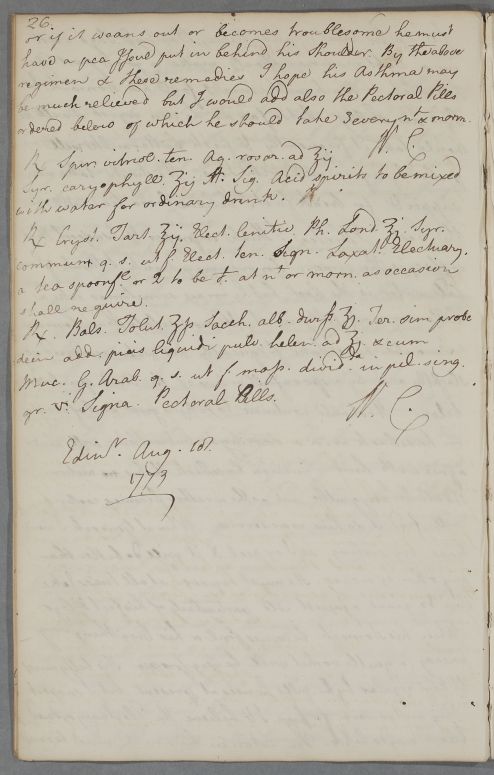 26.
or if it weans out or becomes troublesome he must
have a pea Issue put in behind his Shoulder. By the above
regimen & these remedies I hope his Asthma may
be much relieved but I would add also the Pectoral Pills
ordered below of which he should take 3 every nt & morn.
W. C.
℞ Spir. vitriol. ten. Aq. rosar. ad ʒij
Syr. caryophyll. ʒij ft. Sig. Acid spirits to be mixed
with water for ordinary drink.
℞ Cryst. Tart. ʒij. Elect. lenitiv. Ph. Lond. ʒj. Syr.
commun. q. s. ut f. Elect. ten. Sign. Laxat. Electuary.
a tea spoonf. or 2 to be t. at nt or morn. as occasion
shall require.
℞. Bals. Tolut. ʒſs. Sacch. alb. duriſs. ʒj. Ter. sim probe
dein add. picis liquidi pulv. helen. ad ʒj. & cum
Muc. G. Arab. q. s. ut f. maſs. divid. in pil. sing.
gr. v. Signa. Pectoral Pills.
W. C.
Edinr. Aug. 18.
1773